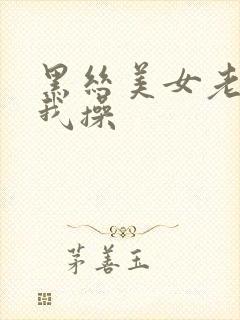 黑丝美女老
我操
茅善玉